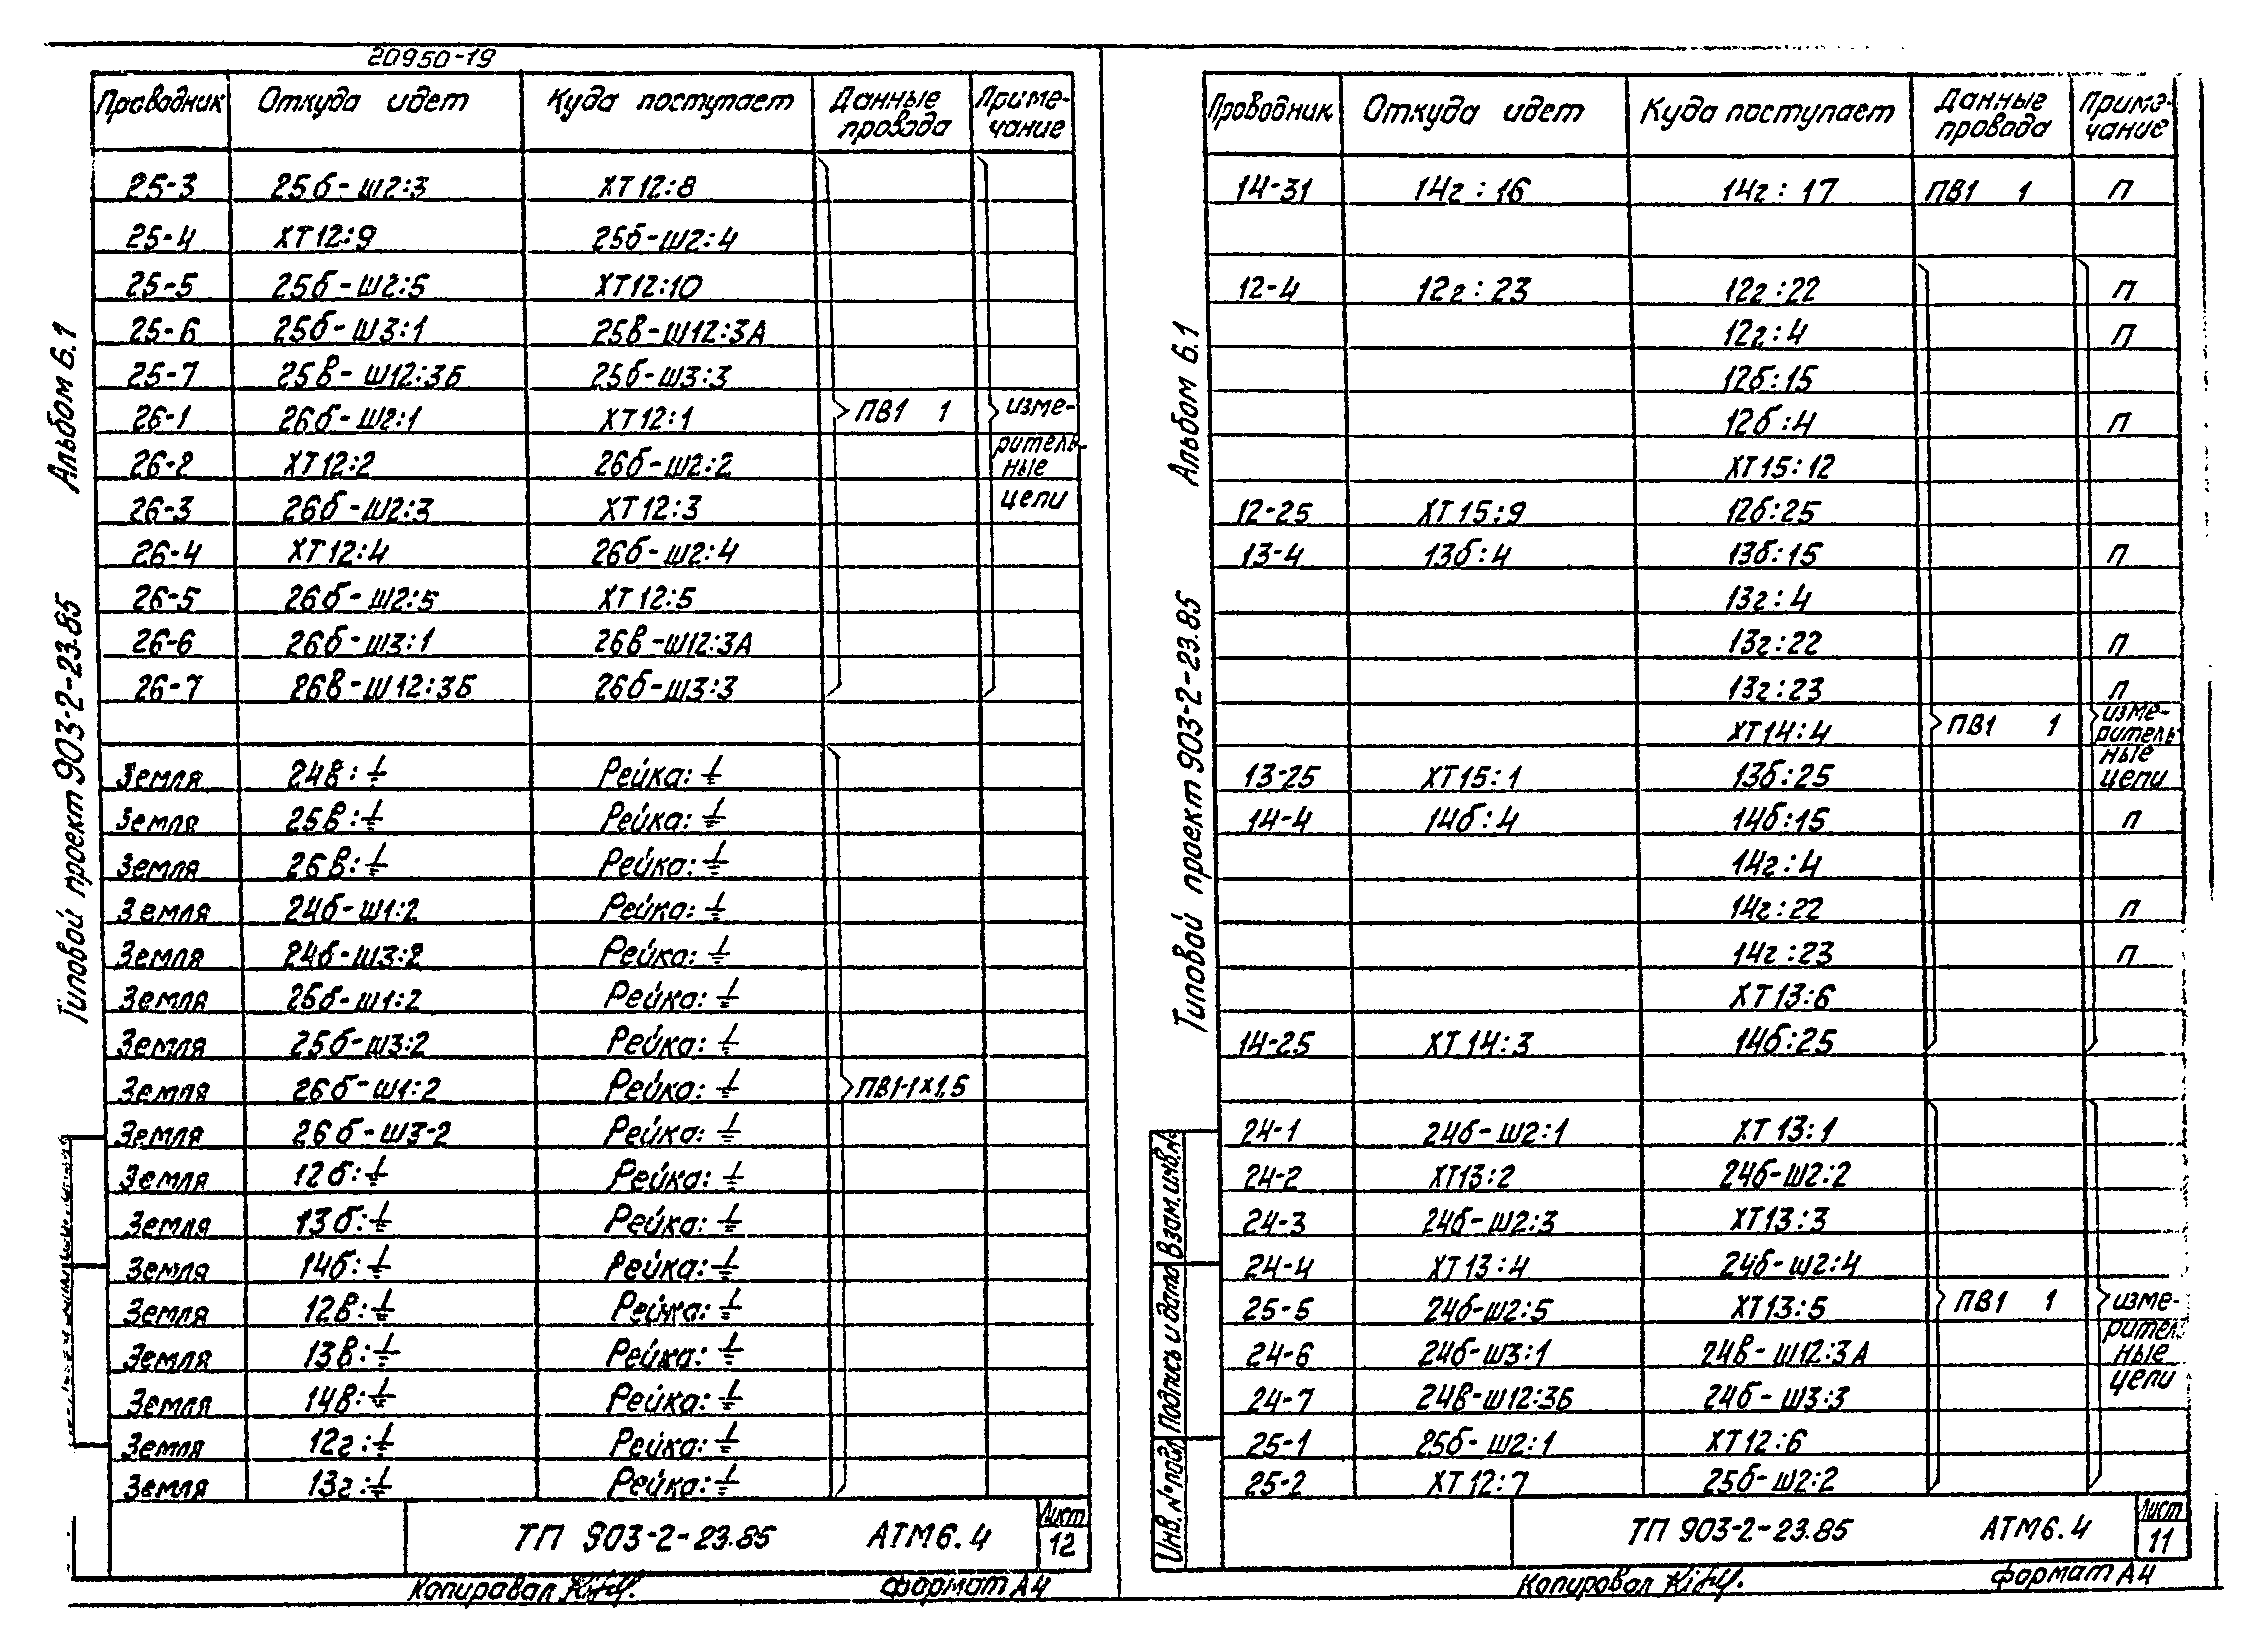 20950-19
Проводник Откуда идет Куда поступает Данные провода Приме-чание
25-3 25б-Ш2:3 ХТ12:8
25-4 ХТ12:9 25б-Ш2:4
25-5 25б-Ш2:5 ХТ12:10
25-6 25б-Ш3:1 25в-Ш12:3А
25-7 25в-Ш12:3Б 25б-Ш3:3
26-1 26б-Ш2:1 ХТ12:1 ПВ1 1 изме-
26-2 ХТ12:2 26б-Ш2:2 ритель-ные
26-3 26б-Ш2:3 ХТ12:3 цепи
26-4 ХТ12:4 26б-Ш2:4
26-5 26б-Ш2:5 ХТ12:5
26-6 26б-Ш3:1 26в-Ш12:3А
26-7 26в-Ш12:3Б 26б-Ш3:3
Земля 24в:⏚ Рейка:⏚
Земля 25в:⏚ Рейка:⏚
Земля 26в:⏚ Рейка:⏚
Земля 24б-Ш1:2 Рейка:⏚
Земля 24б-Ш3:2 Рейка:⏚
Земля 25б-Ш1:2 Рейка:⏚
Земля 25б-Ш3:2 Рейка:⏚
Земля 26б-Ш1:2 Рейка:⏚ ПВ1-1х1,5
Земля 26б-Ш3-2 Рейка:⏚
Земля 12б:⏚ Рейка:⏚
Земля 13б:⏚ Рейка:⏚
Земля 14б:⏚ Рейка:⏚
Земля 12в:⏚ Рейка:⏚
Земля 13в:⏚ Рейка:⏚
Земля 14в:⏚ Рейка:⏚
Земля 12г:⏚ Рейка:⏚
Земля 13г:⏚ Рейка:⏚
ТП 903-2-23.85 АТМ6.4 Лист 12
Копировал формат А4
Альбом 6.1
Типовой проект 903-2-23.85
Проводник Откуда идет Куда поступает Данные провода Приме-чание
14-31 14г:16 14г:17 ПВ1 1 П
12-4 12г:23 12г:22 П
12г:4 П
12б:15
12б:4 П
ХТ15:12
12-25 ХТ15:9 12б:25
13-4 13б:4 13б:15 П
13г:4
13г:22 П
13г:23 П
ХТ14:4 ПВ1 1 изме-ритель-ные
13-25 ХТ15:1 13б:25 цепи
14-4 14б:4 14б:15 П
14г:4
14г:22 П
14г:23 П
ХТ13:6
14-25 ХТ14:3 14б:25
24-1 24б-Ш2:1 ХТ13:1
24-2 ХТ13:2 24б-Ш2:2
24-3 24б-Ш2:3 ХТ13:3
24-4 ХТ13:4 24б-Ш2:4
25-5 24б-Ш2:5 ХТ13:5 ПВ1 1 изме-
24-6 24б-Ш3:1 24в-Ш12:3А ритель-ные
24-7 24в-Ш12:3Б 24б-Ш3:3 цепи
25-1 25б-Ш2:1 ХТ12:6
25-2 ХТ12:7 25б-Ш2:2
ТП 903-2-23.85 АТМ6.4 Лист 11
Копировал формат А4
Альбом 6.1
Типовой проект 903-2-23.85
Взам.инв.№
Подпись и дата
Инв.№подл